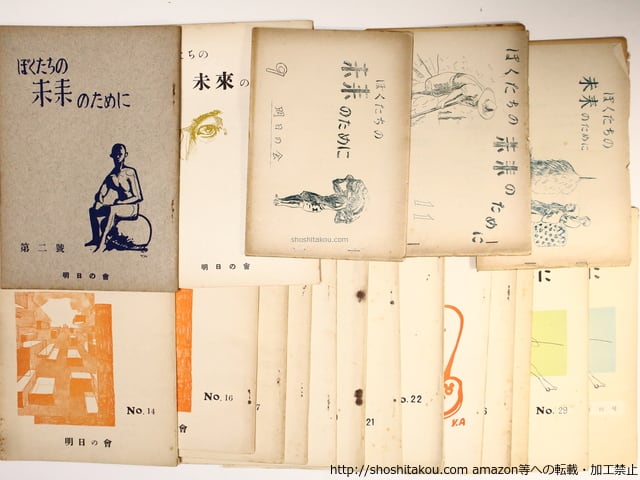 ぼくたちの
未来のために
第二號
明日の會
ちの
未來の
明日の會
ぼくたちの
未来のために
9
明日の会
shoshitakou.com
ぼくたちの未来のために
11
ぼくたちの
未来のために
No. 14
明日の會
No. 16
會
7
21
No. 22
Y.A
6
に
No. 29
に
http://shoshitakou.com amazon等への転載・加工禁止